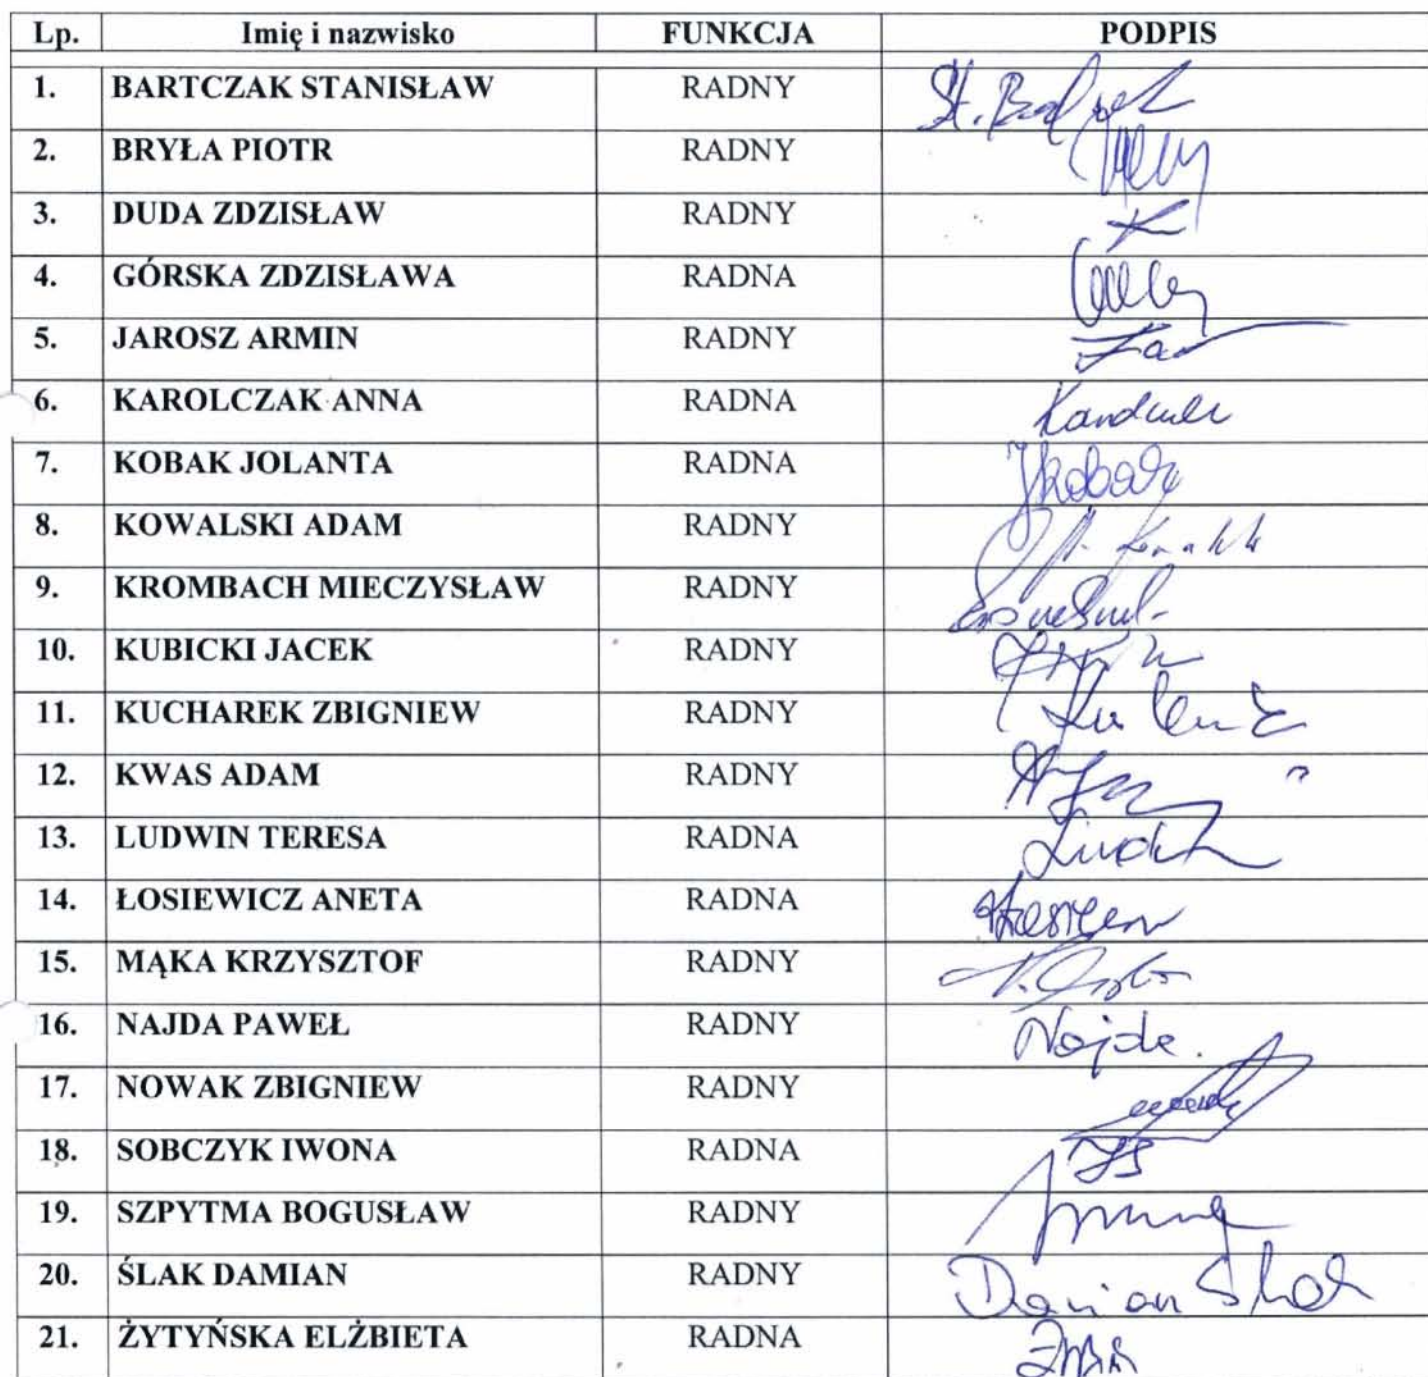 Lp. Imię i nazwisko FUNKCJA PODPIS
1. BARTCZAK STANISŁAW RADNY
2. BRYŁA PIOTR RADNY
3. DUDA ZDZISŁAW RADNY
4. GÓRSKA ZDZISŁAWA RADNA
5. JAROSZ ARMIN RADNY
6. KAROLCZAK ANNA RADNA
7. KOBAK JOLANTA RADNA JKobak
8. KOWALSKI ADAM RADNY
9. KROMBACH MIECZYSŁAW RADNY
10. KUBICKI JACEK RADNY
11. KUCHAREK ZBIGNIEW RADNY
12. KWAS ADAM RADNY
13. LUDWIN TERESA RADNA
14. ŁOSIEWICZ ANETA RADNA
15. MĄKA KRZYSZTOF RADNY
16. NAJDA PAWEŁ RADNY Najda
17. NOWAK ZBIGNIEW RADNY
18. SOBCZYK IWONA RADNA
19. SZPYTMA BOGUSŁAW RADNY
20. ŚLAK DAMIAN RADNY Damian Ślak
21. ŻYTYŃSKA ELŻBIETA RADNA